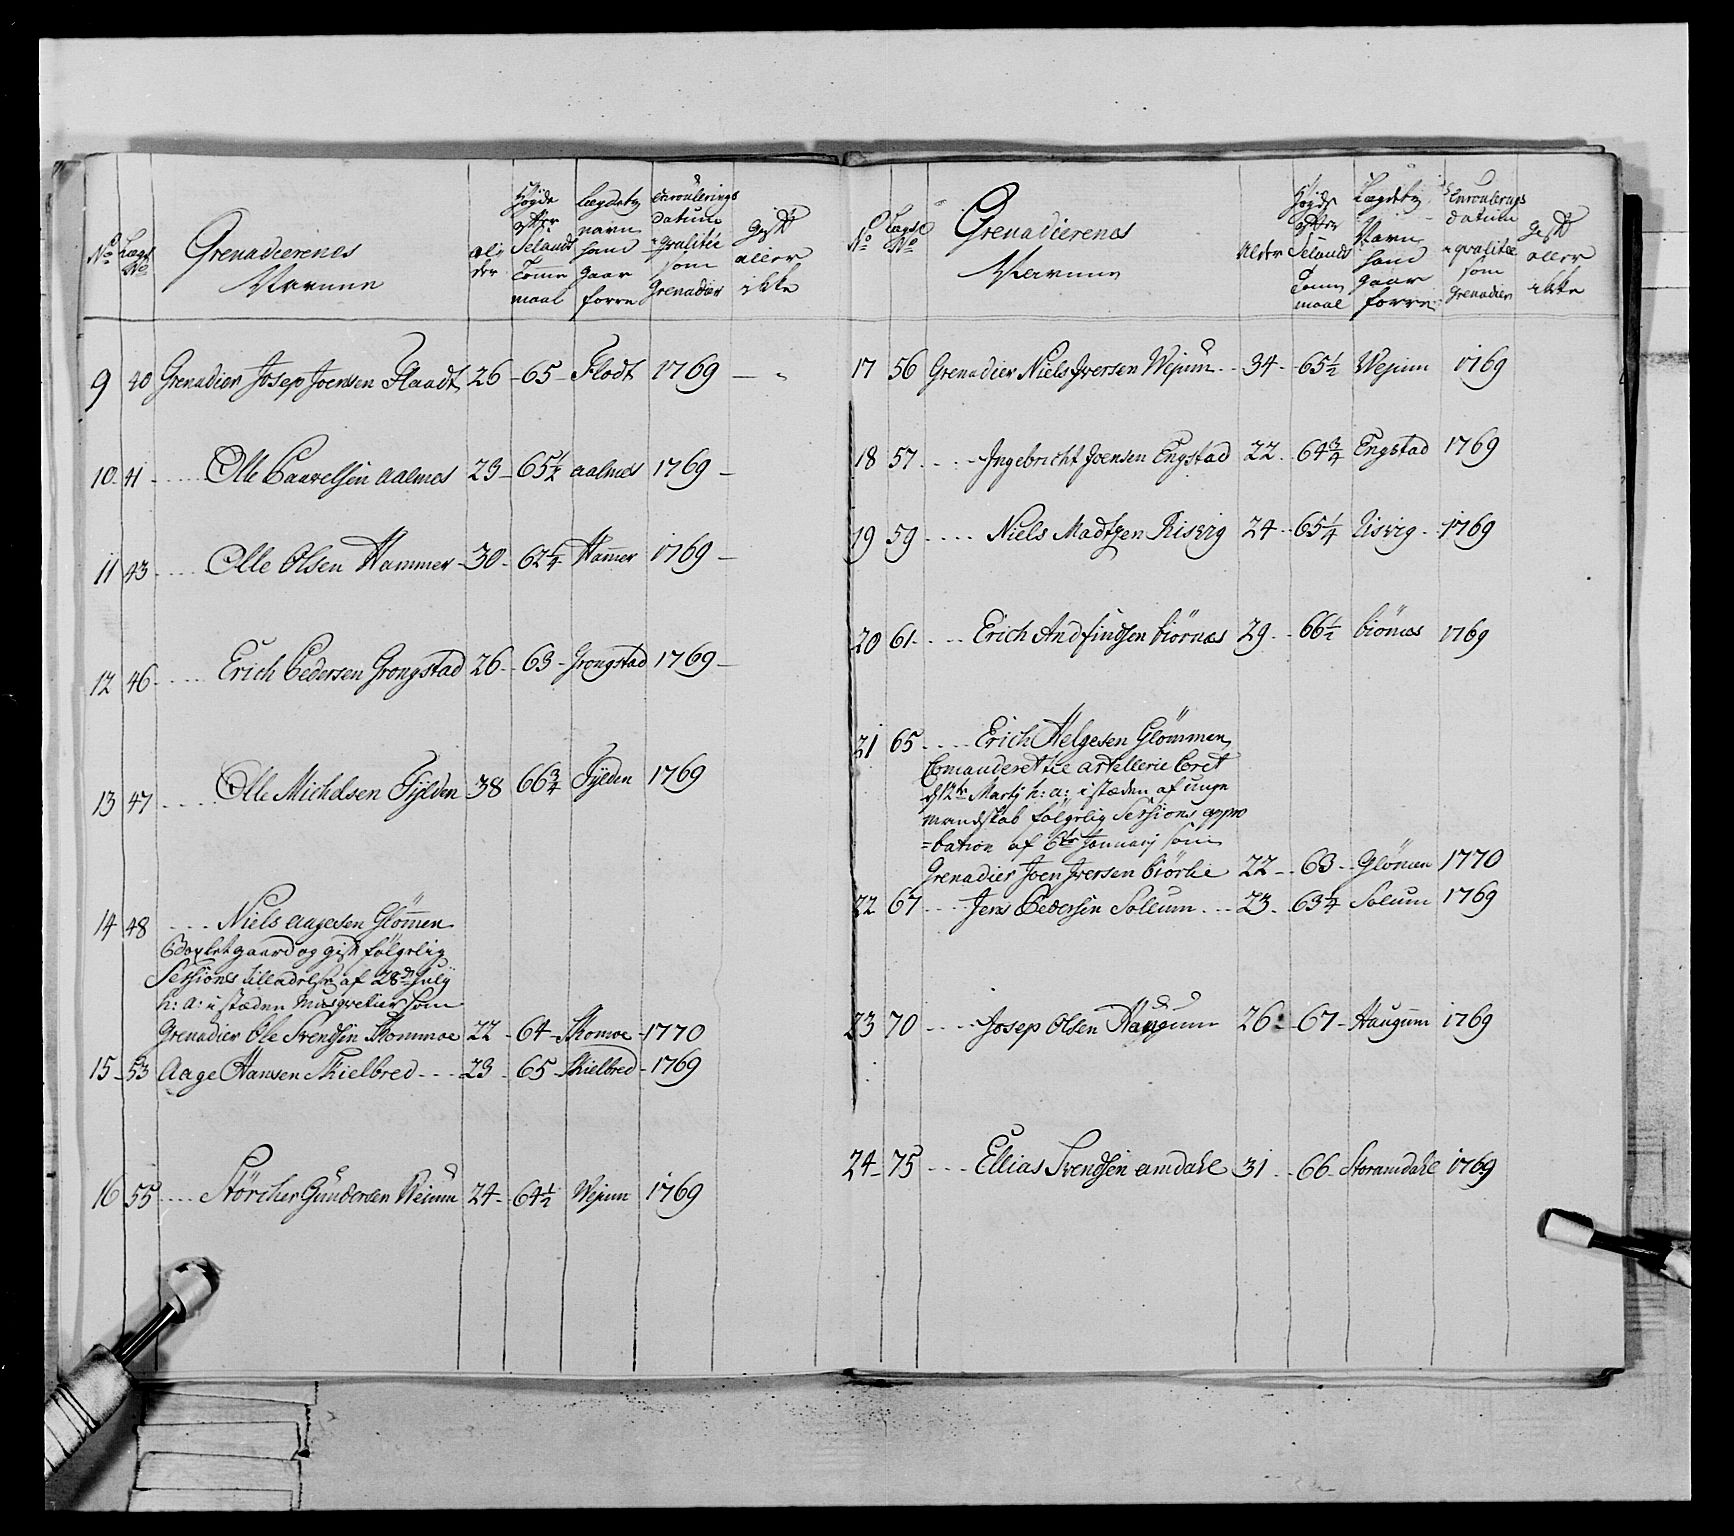 No Lægs No Grenadierenes Navne Alder Høyde efter Selands Tomme maal Lægdetz navn hand gaar forre Enroulerings datum i qvalitée som Grenadier gift aller ikke
9 40 Grenadier Josep Joensen Flaadt 26 - 65 - Flodt 1769 - "
10 41 Olle Paavelsen Aalmes 23 - 65½ Aalmes 1769 -
11 43 Olle Olsen Hammer - 30 - 62¼ Ham̄er 1769 -
12 46 Erich Pedersen Grongstad 26 - 63 - Grongstad 1769 -
13 47 Olle Michelsen Fÿlden 38 66¾ Fÿlden 1769
14 48 Niels Aagesen Glöm̄en
gaard og gift følgelig
Sessions tilladelse af 28de July
h: a: i stæden Musqvetier som
Grenadier Ole Svendsen Skommoe 22 - 64 - Skomoe - 1770
15 - 53 Aage Hansen Skielbred - - - 23 - 65 - Skielbred - 1769
16 55 Störcher Gundersen Weium 24 - 64½ Wejum 1769
No Lægs No Grenadierenes Navne Alder Høyde efter Selands Tomme maal Lægdetz Navn hand gaar forre Enroulerings datum i qvalitée som Grenadier gift aller ikke
17 56 Grenadier Niels Iversen Wejum - - 34 - - 65½ Wejum 1769
18 57 - - - Ingebricht Joensen Engstad 22 - - 64¾ Engstad 1769
19 59 - - - - Niels Madtzen Risvig 24 - - 65¼ Risvig - 1769
20 61 - - - Erich Andfindsen biörnæs 29 - - 66½ biörnæs 1769
21 65 - - - - Erich Helgesen Glömmen
Comanderet til Artellerie Coret
d: 12te Martÿ h: a: i stæden af unge
mandskab følgelig Sessions appro
=bation af 6te January som
Grenadier Joen Iversen biörlie 22 - - 63 - - Glömen 1770
22 67 - - - Jens Pedersen Sollum - - - 23 - 63¼ Solum 1769
23 70 - - - - Josep Olsen Haugum 26 - - 67 - Haugum 1769
24 - 75 - - - Ellias Svendsen Amdahl 31 - - 66 - Storamdahl 1769